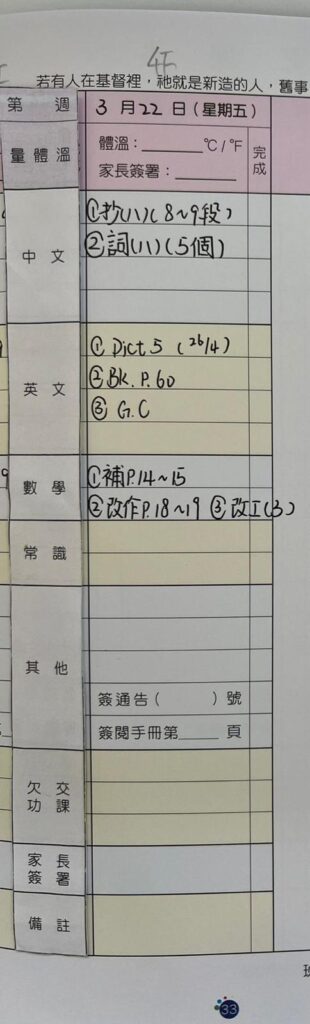 4F
若有人在基督裡，祂就是新造的人，舊事
第 週
3 月 22 日 (星期五)
量體溫
體溫：______°C / °F
家長簽署：______
完成
中文
①抄(八)(8~9段)
②詞(八)(5個)
英文
① Dict 5 (26/4)
② Bk. P.60
③ G.C
數學
①補P.14~15
②改作P.18~19 ③改工(3)
常識
其他
簽通告( )號
簽閱手冊第____頁
欠交功課
家長簽署
備註
33